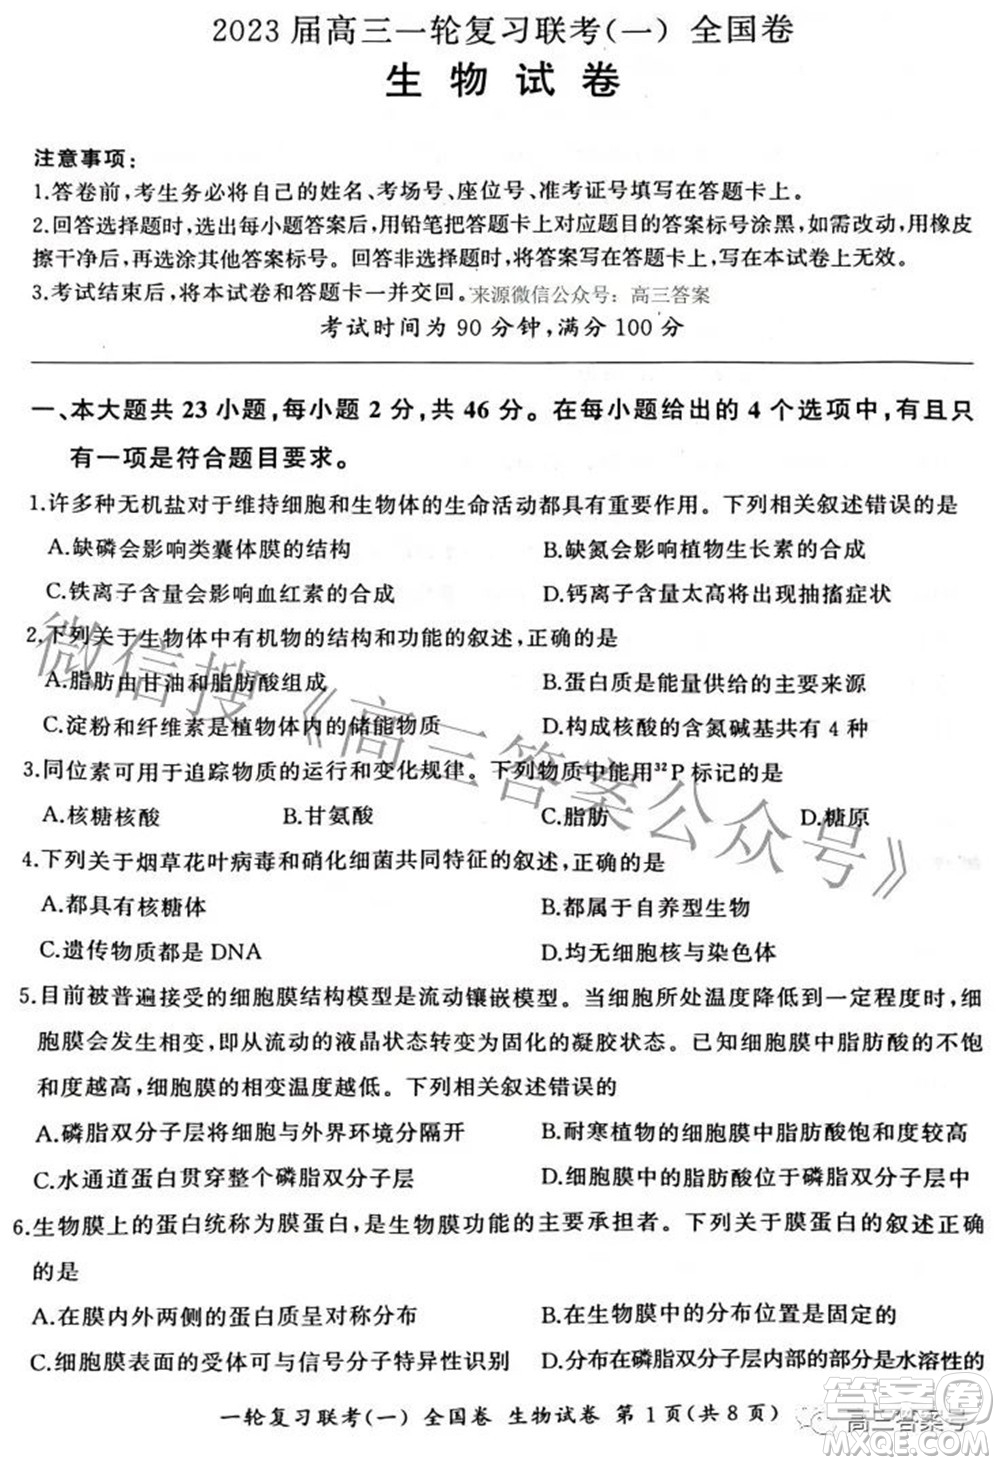 2023届高三一轮复习联考(一) 全国卷
生 物 试 卷
注意事项：
1.答卷前,考生务必将自己的姓名、考场号、座位号、准考证号填写在答题卡上。
2.回答选择题时,选出每小题答案后,用铅笔把答题卡上对应题目的答案标号涂黑,如需改动,用橡皮
擦干净后,再选涂其他答案标号。回答非选择题时,将答案写在答题卡上,写在本试卷上无效。
3.考试结束后,将本试卷和答题卡一并交回。来源微信公众号：高三答案
考试时间为 90 分钟,满分 100 分
一、本大题共 23 小题,每小题 2 分,共 46 分。在每小题给出的 4 个选项中,有且只
有一项是符合题目要求。
1.许多种无机盐对于维持细胞和生物体的生命活动都具有重要作用。下列相关叙述错误的是
A.缺磷会影响类囊体膜的结构 B.缺氮会影响植物生长素的合成
C.铁离子含量会影响血红素的合成 D.钙离子含量太高将出现抽搐症状
2.下列关于生物体中有机物的结构和功能的叙述,正确的是
A.脂肪由甘油和脂肪酸组成 B.蛋白质是能量供给的主要来源
C.淀粉和纤维素是植物体内的储能物质 D.构成核酸的含氮碱基共有 4 种
3.同位素可用于追踪物质的运行和变化规律。下列物质中能用³²P 标记的是
A.核糖核酸 B.甘氨酸 C.脂肪 D.糖原
4.下列关于烟草花叶病毒和硝化细菌共同特征的叙述,正确的是
A.都具有核糖体 B.都属于自养型生物
C.遗传物质都是 DNA D.均无细胞核与染色体
5.目前被普遍接受的细胞膜结构模型是流动镶嵌模型。当细胞所处温度降低到一定程度时,细
胞膜会发生相变,即从流动的液晶状态转变为固化的凝胶状态。已知细胞膜中脂肪酸的不饱
和度越高,细胞膜的相变温度越低。下列相关叙述错误的
A.磷脂双分子层将细胞与外界环境分隔开 B.耐寒植物的细胞膜中脂肪酸饱和度较高
C.水通道蛋白贯穿整个磷脂双分子层 D.细胞膜中的脂肪酸位于磷脂双分子层中
6.生物膜上的蛋白统称为膜蛋白,是生物膜功能的主要承担者。下列关于膜蛋白的叙述正确
的是
A.在膜内外两侧的蛋白质呈对称分布 B.在生物膜中的分布位置是固定的
C.细胞膜表面的受体可与信号分子特异性识别 D.分布在磷脂双分子层内部的部分是水溶性的
一轮复习联考(一) 全国卷 生物试卷 第 1 页(共 8 页)
微信搜《高三答案公众号》
高三答案号
答案圈
MXQE.COM